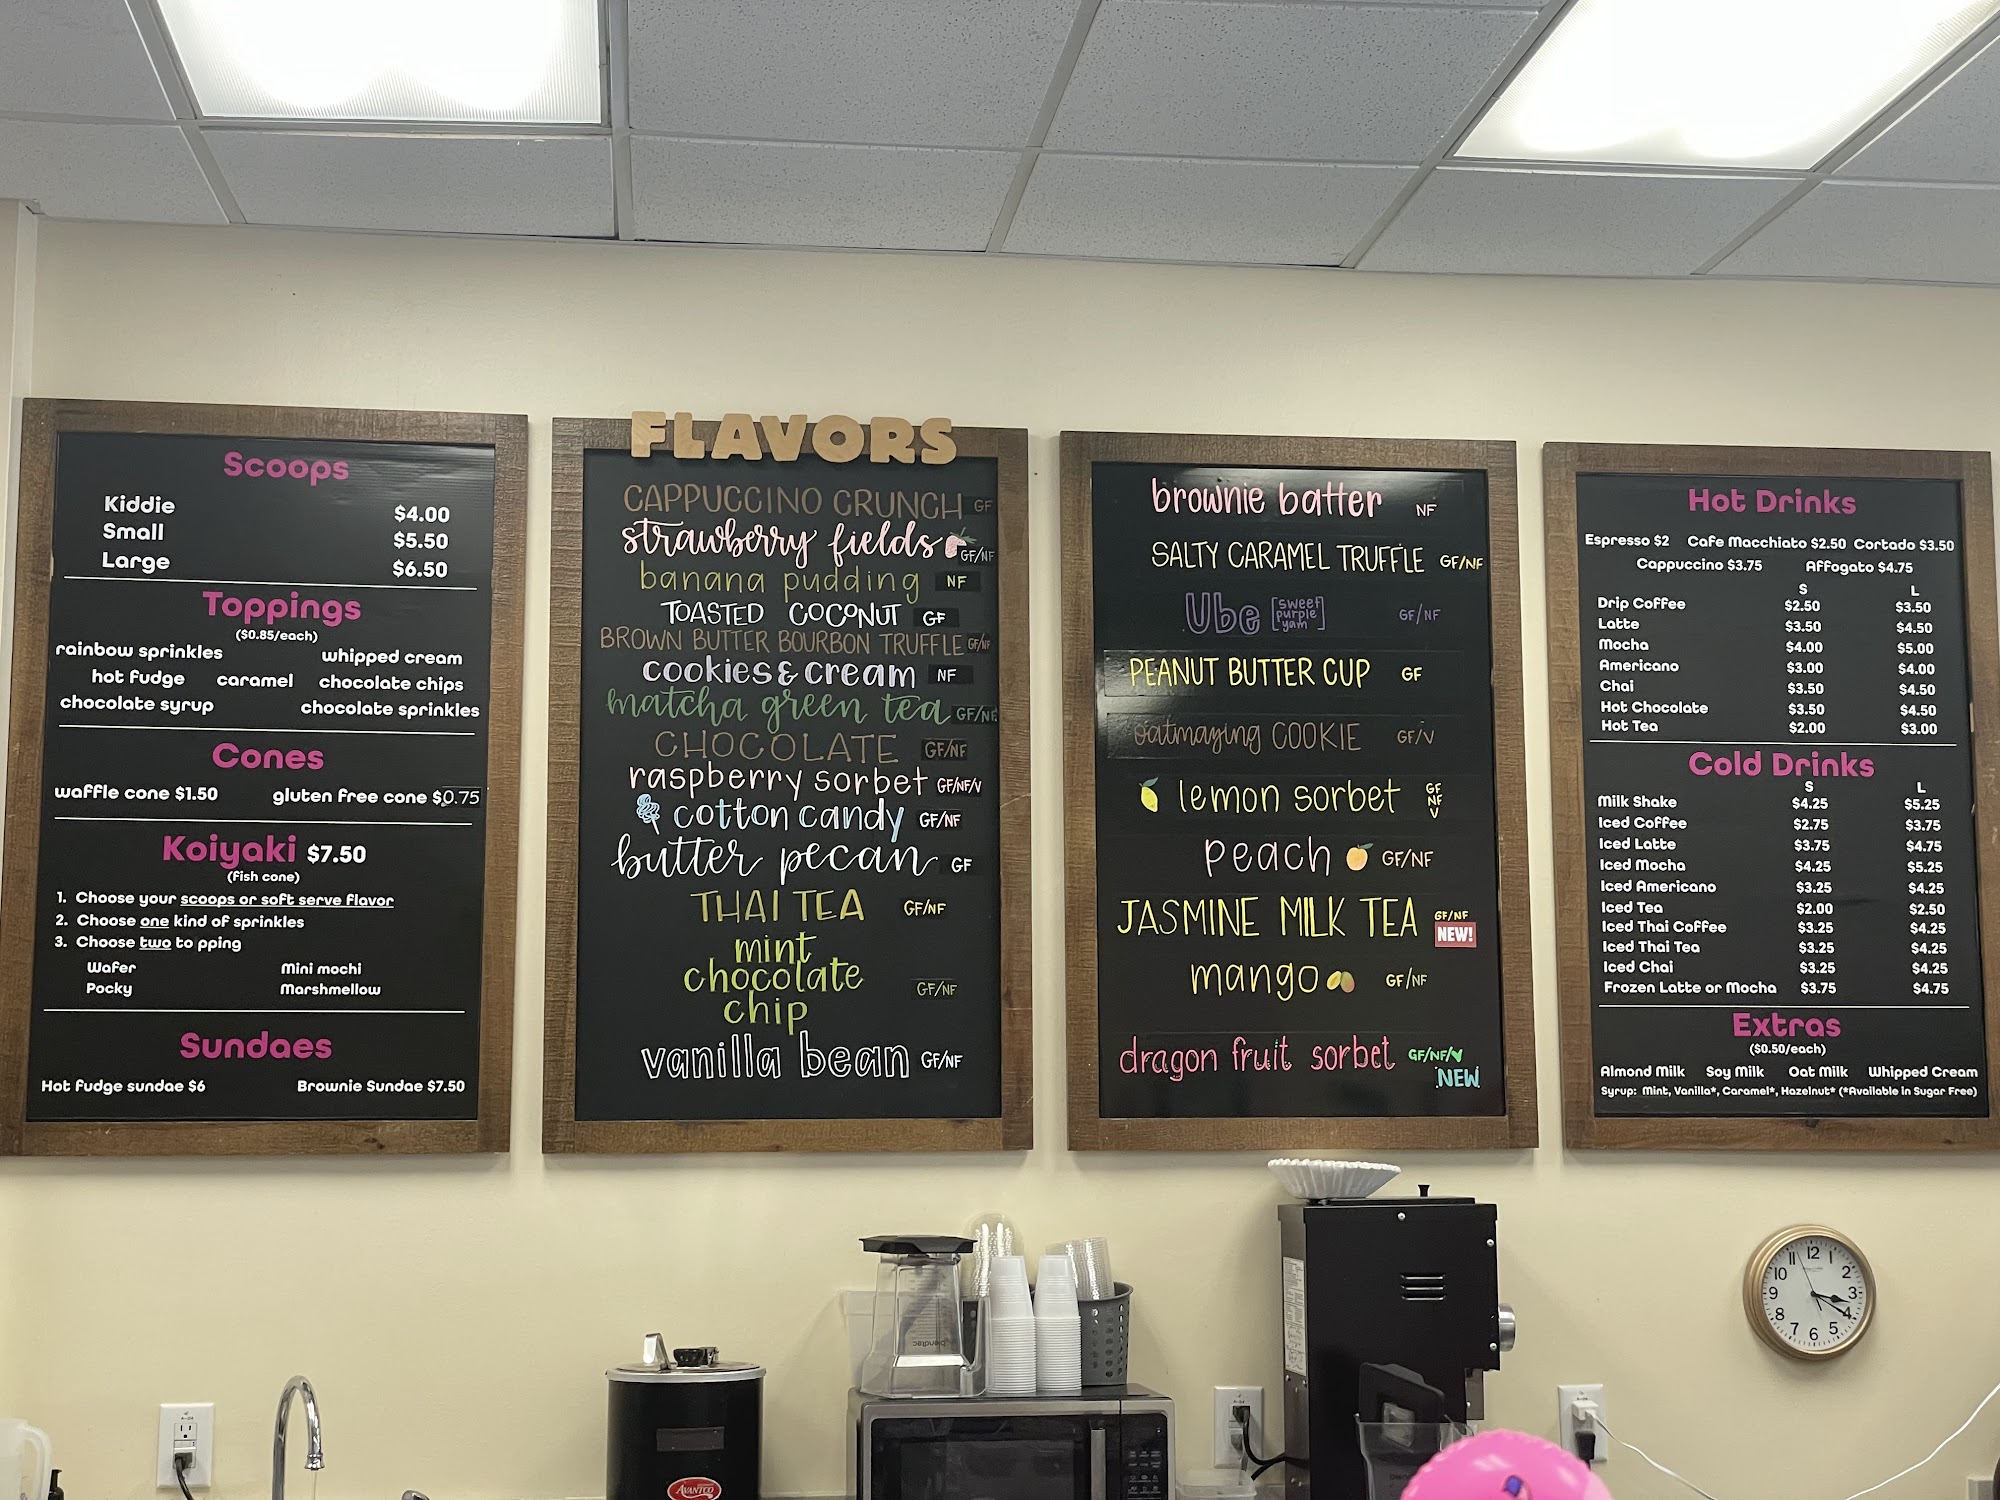 Scoops
Kiddie $4.00
Small $5.50
Large $6.50
Toppings
($0.85/each)
rainbow sprinkles whipped cream
hot fudge caramel chocolate chips
chocolate syrup chocolate sprinkles
Cones
waffle cone $1.50 gluten free cone $0.75
Koiyaki $7.50
(fish cone)
1. Choose your scoops or soft serve flavor
2. Choose one kind of sprinkles
3. Choose two to pping
Wafer Mini mochi
Pocky Marshmellow
Sundaes
Hot fudge sundae $6 Brownie Sundae $7.50
FLAVORS
CAPPUCCINO CRUNCH GF
strawberry fields GF/NF
banana pudding NF
TOASTED COCONUT GF
BROWN BUTTER BOURBON TRUFFLE GF/NF
cookies & cream NF
matcha green tea GF/NF
CHOCOLATE GF/NF
raspberry sorbet GF/NF/V
cotton candy GF/NF
butter pecan GF
THAI TEA GF/NF
mint
chocolate
chip GF/NF
vanilla bean GF/NF
brownie batter NF
SALTY CARAMEL TRUFFLE GF/NF
Ube [sweet purple yam] GF/NF
PEANUT BUTTER CUP GF
oatmaying COOKIE GF/V
lemon sorbet GF NF V
peach GF/NF
JASMINE MILK TEA GF/NF
NEW!
mango GF/NF
dragon fruit sorbet GF/NF/V
NEW
Hot Drinks
Espresso $2 Cafe Macchiato $2.50 Cortado $3.50
Cappuccino $3.75 Affogato $4.75
S L
Drip Coffee $2.50 $3.50
Latte $3.50 $4.50
Mocha $4.00 $5.00
Americano $3.00 $4.00
Chai $3.50 $4.50
Hot Chocolate $3.50 $4.50
Hot Tea $2.00 $3.00
Cold Drinks
S L
Milk Shake $4.25 $5.25
Iced Coffee $2.75 $3.75
Iced Latte $3.75 $4.75
Iced Mocha $4.25 $5.25
Iced Americano $3.25 $4.25
Iced Tea $2.00 $2.50
Iced Thai Coffee $3.25 $4.25
Iced Thai Tea $3.25 $4.25
Iced Chai $3.25 $4.25
Frozen Latte or Mocha $3.75 $4.75
Extras
($0.50/each)
Almond Milk Soy Milk Oat Milk Whipped Cream
Syrup: Mint, Vanilla*, Caramel*, Hazelnut* (*Available in Sugar Free)
12 1 2 3 4 5 6 7 8 9 10 11
blendtec
AVANTCO